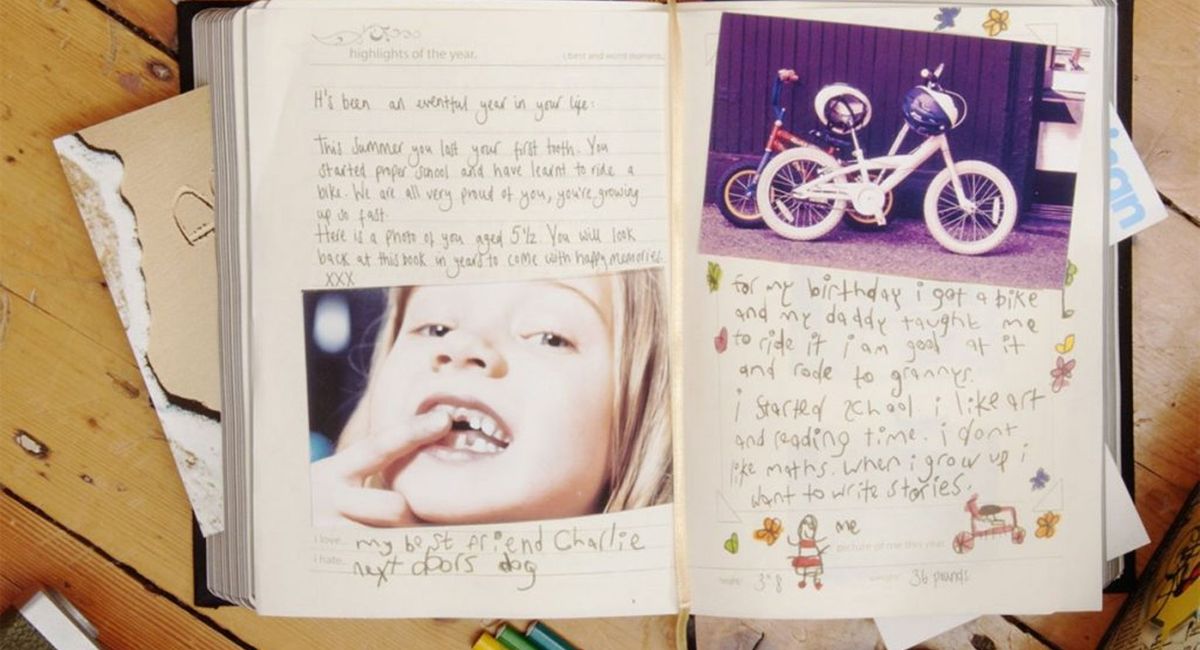 highlights of the year.
(best and worst moments)
It's been an eventful year in your life:
This Summer you lost your first tooth. You
started proper school and have learnt to ride a
bike. We are all very proud of you, you're growing
up so fast.
Here is a photo of you aged 5½. You will look
back at this book in years to come with happy memories.
XXX
i love... my best friend Charlie
i hate... next doors dog
for my birthday i got a bike
and my daddy taught me
to ride it i am good at it
and rode to grannys.
i started school i like art
and reading time. i dont
like maths. When i grow up i
want to write stories.
me
picture of me this year
height: 3"8 weight: 36 pounds